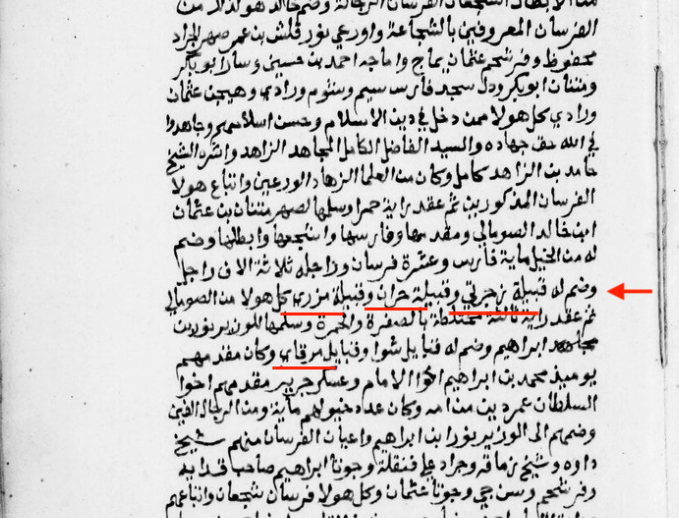 الفرسان المعروفين بالشجاعة واورعي نور قلش بن عمر صهر الجراد
محفوظ وفرشحم عثمان واماجه احمد بن حسين وسارا بو بكر
ومتان ابو بكر سيم وستوم ورادي وهيجن عثمان
ورادي كل هولا ممن دخل في دين الاسلام وحسن اسلامهم وجاهدوا
في الله حق جهاده والسيد الفاضل الكامل المجاهد الزاهد الشيخ
حامد بن الزاهد كامل وكان من العلما الزهاد الورعين واتباع هولا
الفرسان المذكورين ثم عقد راية حمرا وسلمها لصهر متان بن عثمان
ابن خالد الصومالي ومقدمها وفارسها واشجعها وابطلها وضم
له من الخيل ماية فارس وعشرة فرسان ورجله ثلاثة الاف راجل
وضم له قبيلة زحرتي وقبيلة حران وقبيلة مزري كل هولا من الصومال
ثم عقد راية ثالثة مختلطة بالصفرة والحمرة وسلمها للوزير نور بن
ابراهيم وضم له قبايل شوا وقبايل هرقاي وكان مقدمهم
يوميذ محمد بن ابراهيم اخوا الامام وعسكر مقدمهم اخوا
السلطان عمر دين من امه وكان عدد خيولهم ماية ومن الرجال الفين
وضمهم الى الوزير نور ابن ابراهيم واعيان الفرسان منهم شيخ
داوه وشيخ وجراد علي وجوتا ابراهيم صاحب
وفرشحم وجوتا عثمان وكل هولا فرسان شجعان واتباعهم